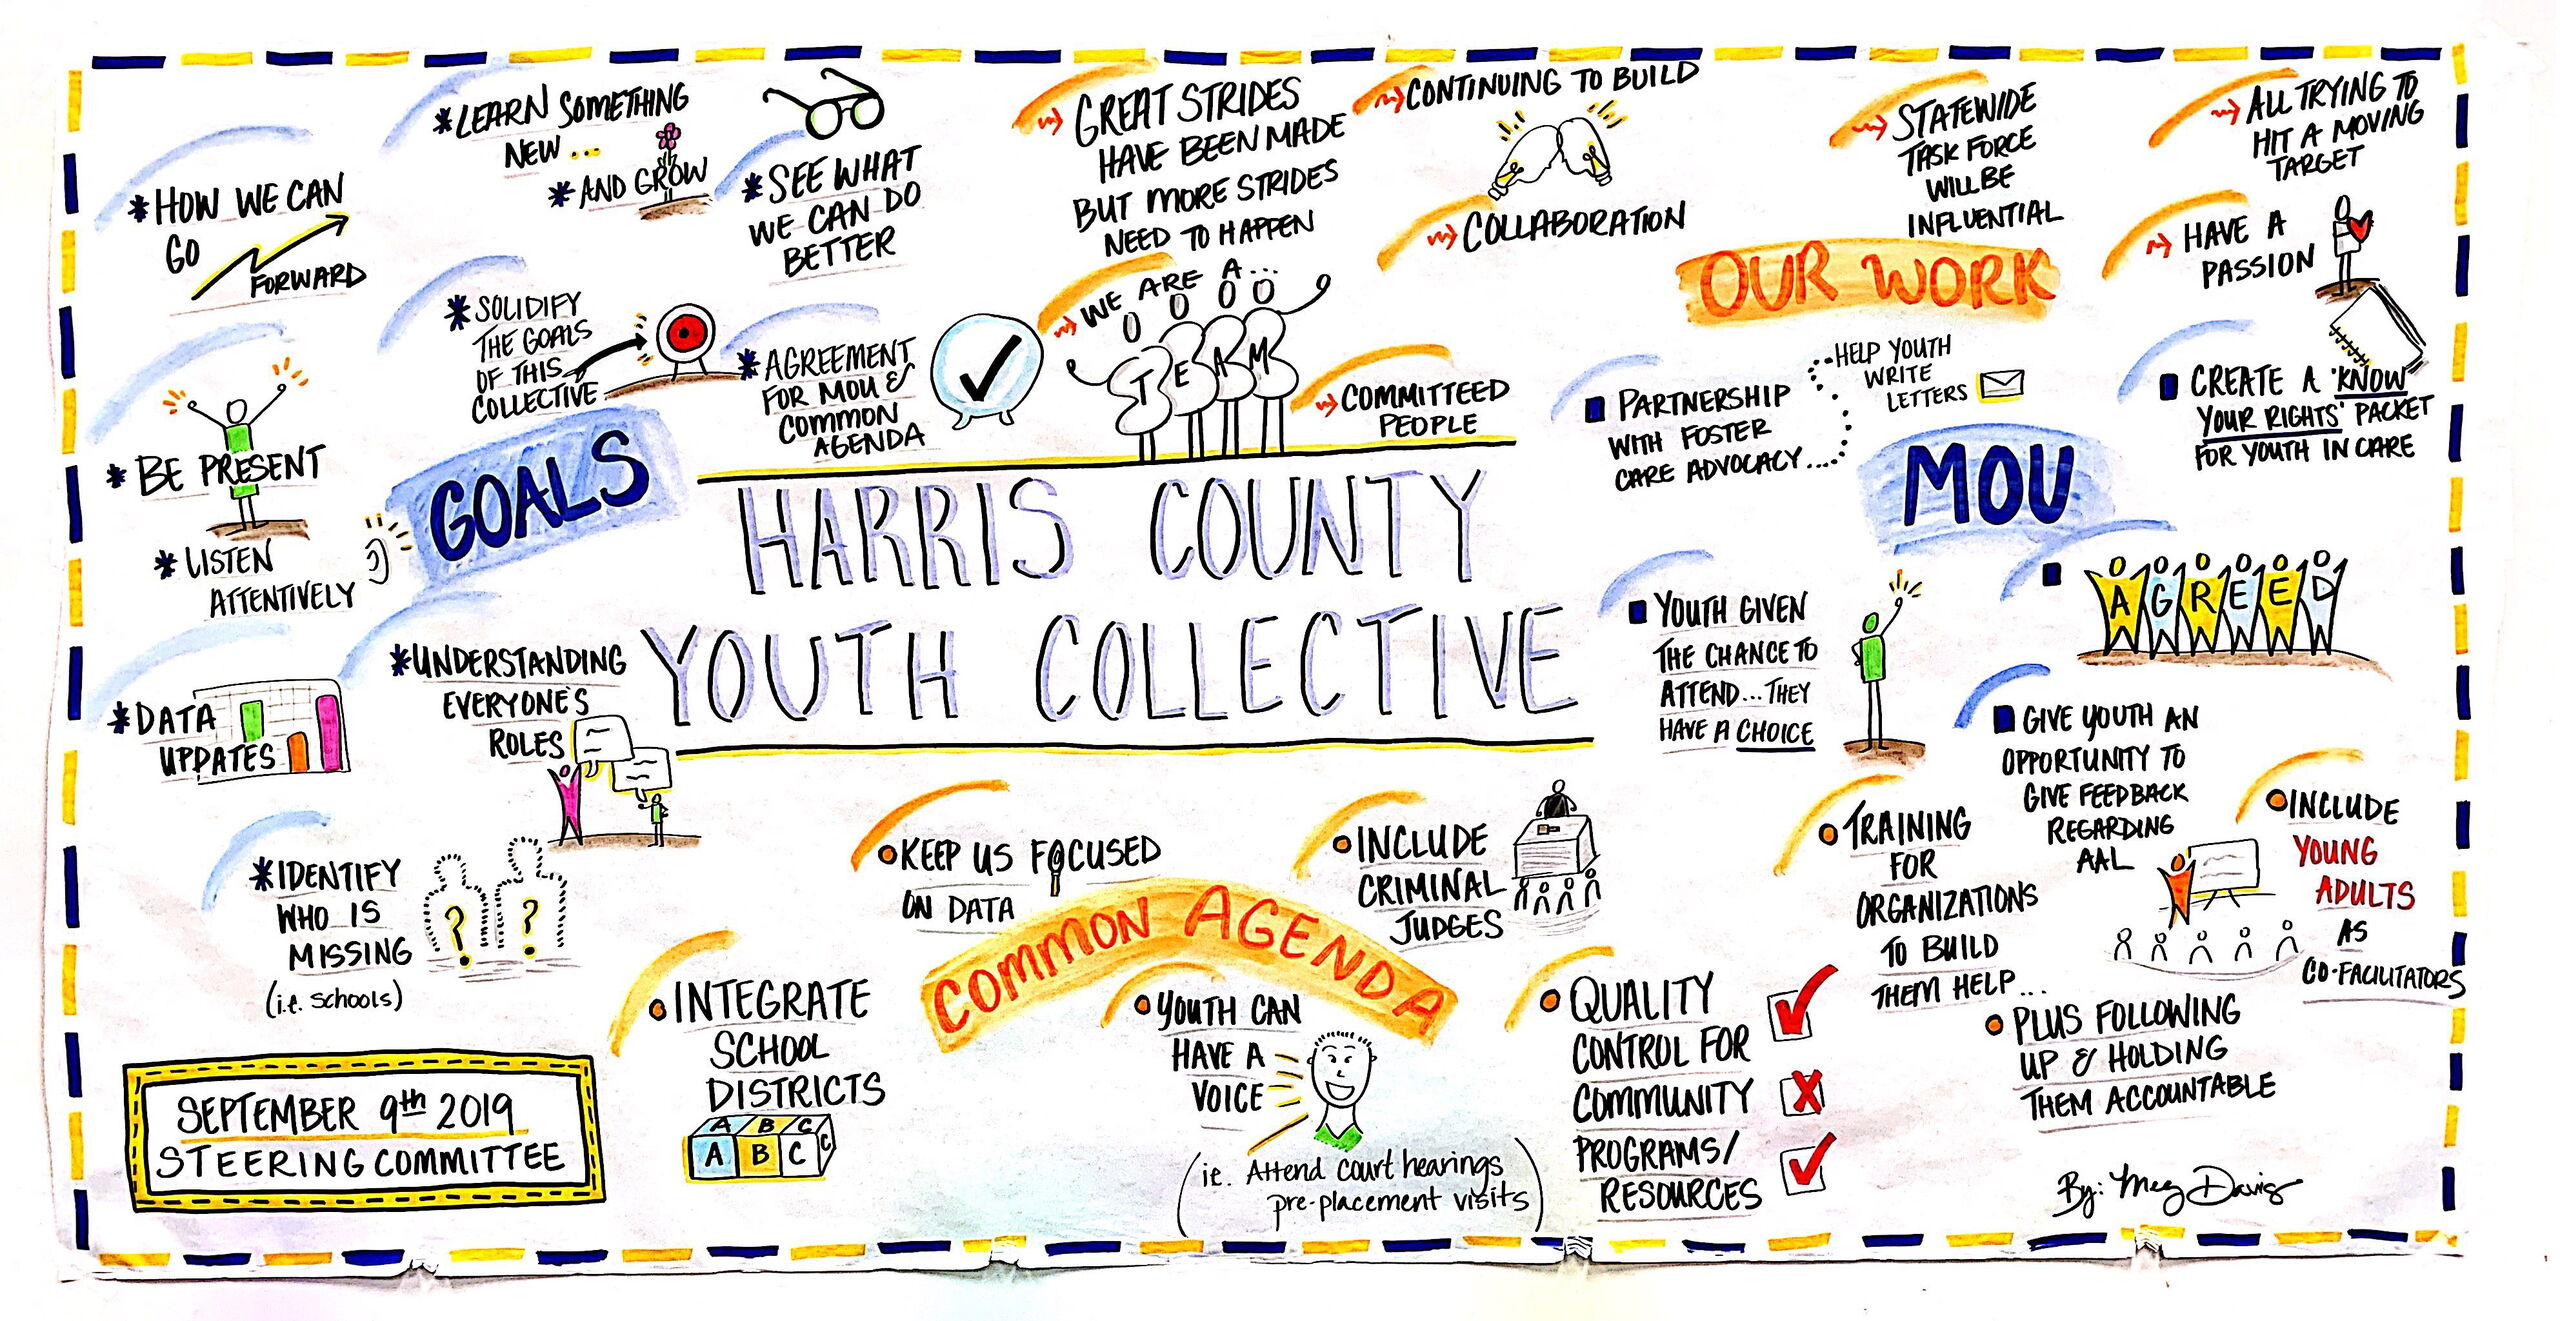 * HOW WE CAN
GO
FORWARD
* LEARN SOMETHING
NEW ...
* AND GROW
* SEE WHAT
WE CAN DO
BETTER
* SOLIDIFY
THE GOALS
OF THIS
COLLECTIVE
* AGREEMENT
FOR MOU &
COMMON
AGENDA
* BE PRESENT
* LISTEN
ATTENTIVELY
GOALS
* DATA
UPDATES
* UNDERSTANDING
EVERYONE'S
ROLES
* IDENTIFY
WHO IS
MISSING
(i.e. schools)
? ?
GREAT STRIDES
HAVE BEEN MADE
BUT MORE STRIDES
NEED TO HAPPEN
CONTINUING TO BUILD
COLLABORATION
WE ARE A...
TEAM
COMMITTEED
PEOPLE
STATEWIDE
TASK FORCE
WILL BE
INFLUENTIAL
ALL TRYING TO
HIT A MOVING
TARGET
HAVE A
PASSION
OUR WORK
HARRIS COUNTY
YOUTH COLLECTIVE
PARTNERSHIP
WITH FOSTER
CARE ADVOCACY....
HELP YOUTH
WRITE
LETTERS
CREATE A 'KNOW
YOUR RIGHTS' PACKET
FOR YOUTH IN CARE
MOU
AGREED
YOUTH GIVEN
THE CHANCE TO
ATTEND... THEY
HAVE A CHOICE
GIVE YOUTH AN
OPPORTUNITY TO
GIVE FEEDBACK
REGARDING
AAL
KEEP US FOCUSED
ON DATA
INCLUDE
CRIMINAL
JUDGES
COMMON AGENDA
INTEGRATE
SCHOOL
DISTRICTS
A B C
A B C C
YOUTH CAN
HAVE A
VOICE
(ie. Attend court hearings
pre-placement visits)
QUALITY
CONTROL FOR
COMMUNITY
PROGRAMS/
RESOURCES
TRAINING
FOR
ORGANIZATIONS
TO BUILD
THEM HELP...
PLUS FOLLOWING
UP & HOLDING
THEM ACCOUNTABLE
INCLUDE
YOUNG
ADULTS
AS
CO-FACILITATORS
SEPTEMBER 9th 2019
STEERING COMMITTEE
By: Meg Davis